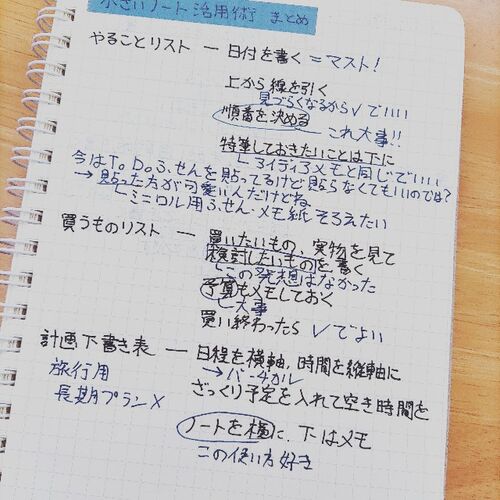 小さいノート活用術 まとめ
やることリスト ー 日付を書く = マスト!
上から線を引く
見づらくなるから✓でいい
順番を決める
これ大事!!
特筆しておきたいことは下に
アイディアメモと同じでいい
今はT。D。ふせんを貼ってるけど貼らなくてもいいのでは?
→ 貼った方が可愛いんだけどね
ミニロル用ふせん・メモ紙 そろえたい
買うものリスト ー 買いたいもの、実物を見て
検討したいものを書く
この発想はなかった
予算もメモしておく
大事
買い終わったら ✓でよい
計画下書き表 ー 日程を横軸、時間を縦軸に
旅行用
→ バーチカル
長期プラン×
ざっくり予定を入れて空き時間を
ノートを横に、下はメモ
この使い方好き